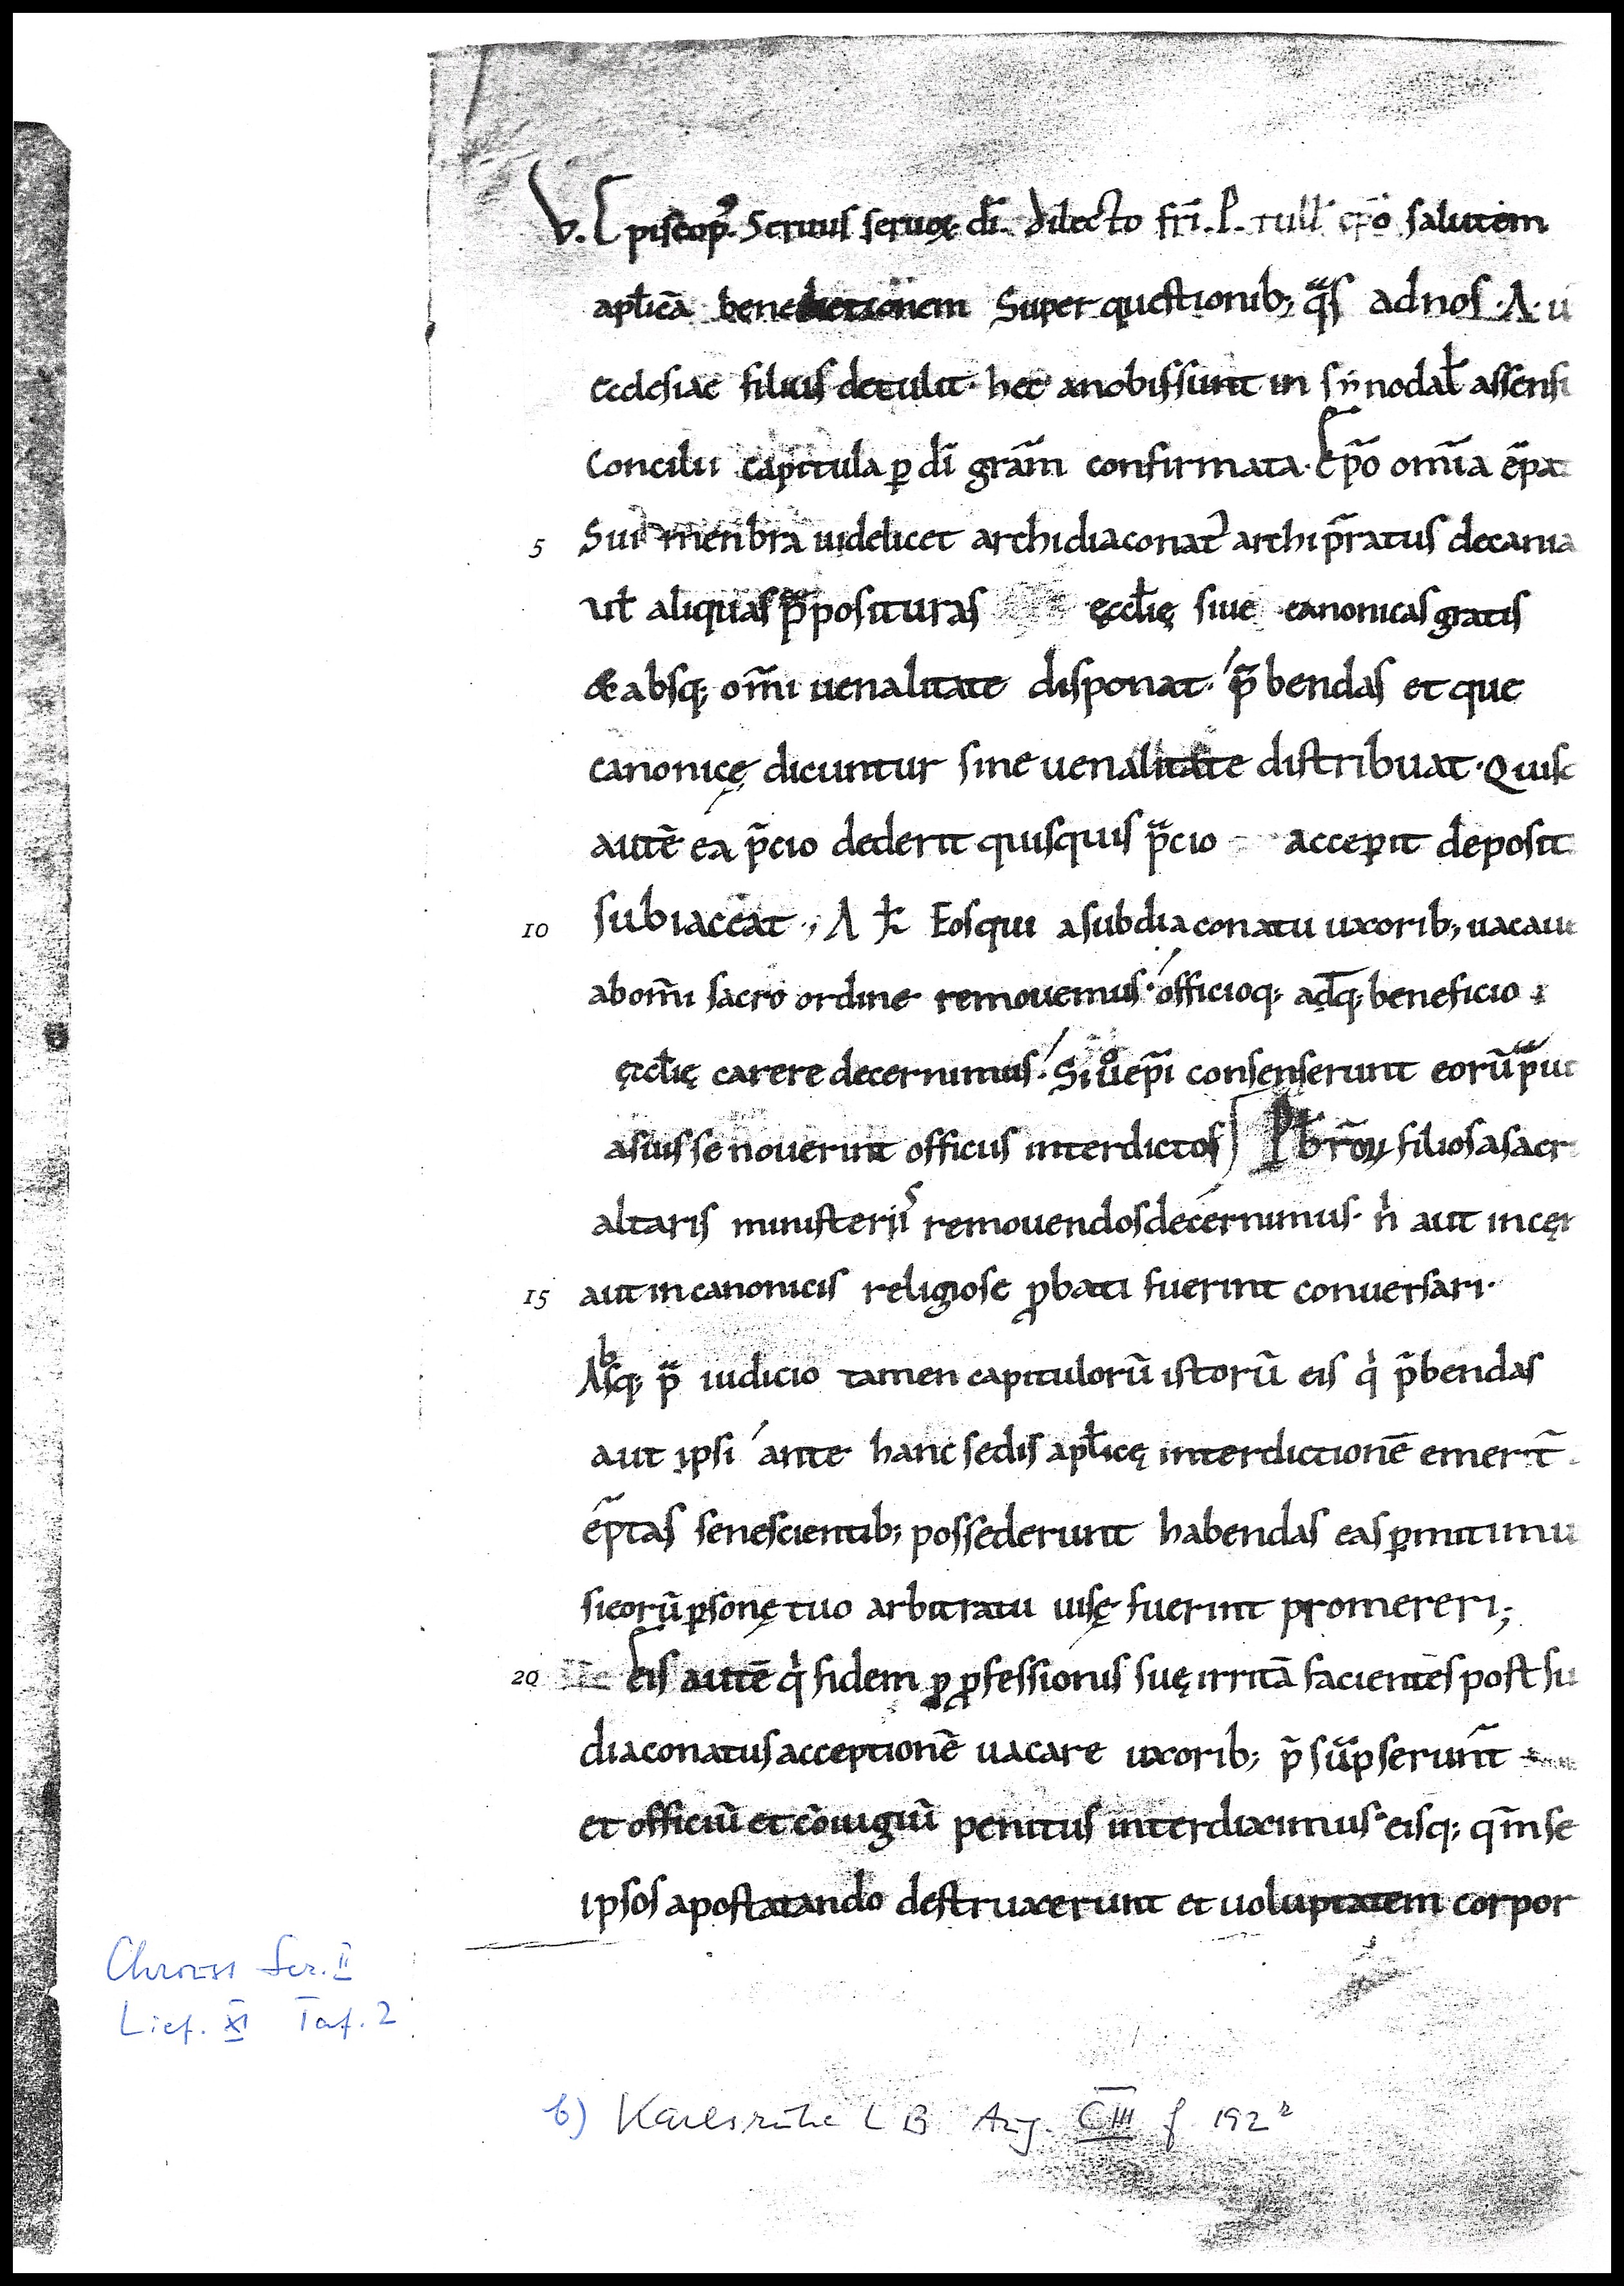 V. Episcop᾽. Seruus seruoꝝ. dī. dilecto frī. P. tull' ep̄o salutem
apl̄icā benedictionem Super questionib; qͣs ad nos. A. u
ecclesiae filius detulit. hec anobis sunt in synodal̄ assensi
Concilii capitula ꝑ dī grām confirmata. Ep̄o om̄ia ēpat
5 Sui menbra uidelicet archidiaconat᾽ archip̄ratus decania
ul̄ aliquas p̄posituras ęccl̄ię siue canonicas gratis
& absq; om̄i uenalitate disponat. p̄bendas et que
canonicę dicuntur sine uenalitate distribuat. Quisc
autē ea p̄cio dederit quisquis p̄cio acceꝑit deposit
10 subiaceat., A k̄ Eos qui a subdiaconatu uxorib; uacaue
ab om̄i sacro ordine remouemus. officioq; adq; beneficio
ęccl̄ię carere decernimus. Si uͦ ep̄i consenserunt eorū p̄ui
a suis se nouerint officiis interdictos Pb̄roꝝ filios a sacr
altaris ministeriis remouendos decernimus. n̍ aut in cęn
15 aut in canonicis religiose ꝓbati fuerint conuersari.
Absq; p̄iudicio tamen capitulorū istorū eis qi p̄bendas
aut ipsi ante hanc sedis apl̄icę interdictionē emert̄
ēptas senescientib; possederunt habendas eas ꝑmitimu
si eorū ꝑsonę tuo arbitratu uisę fuerint promereri;
20 Eis autē qi fidem ꝑ ꝓfessionis suę irritā facientes post su
diaconatus acceptionē uacare uxorib; p̄sūpserunt
et officiū et cōiugiū penitus interdiximus. eisq; qm̄ se
ipsos apostatando destruxerunt et uoluptatem corpor
Chroust Ser. II
Lief. XI Taf. 2
b) Karlsruhe L B Aug. CIII f 192ʳ